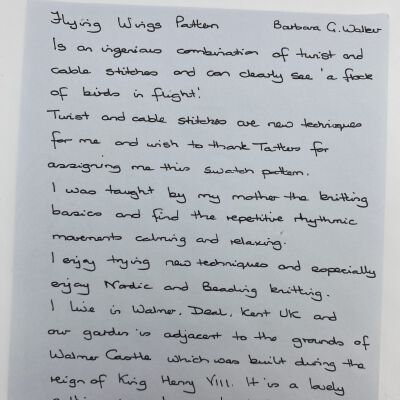 Flying Wings Pattern Barbara G. Walker
Is an ingenious combination of twist and
cable stitches and can clearly see 'a flock
of birds in flight'.
Twist and cable stitches are new techniques
for me and wish to thank Tatters for
assigning me this swatch pattern.
I was taught by my mother the knitting
basics and find the repetitive rhythmic
movements calming and relaxing.
I enjoy trying new techniques and especially
enjoy Nordic and Beading knitting.
I live in Walmer, Deal, Kent UK and
our garden is adjacent to the grounds of
Walmer Castle which was built during the
reign of King Henry VIII. It is a lovely